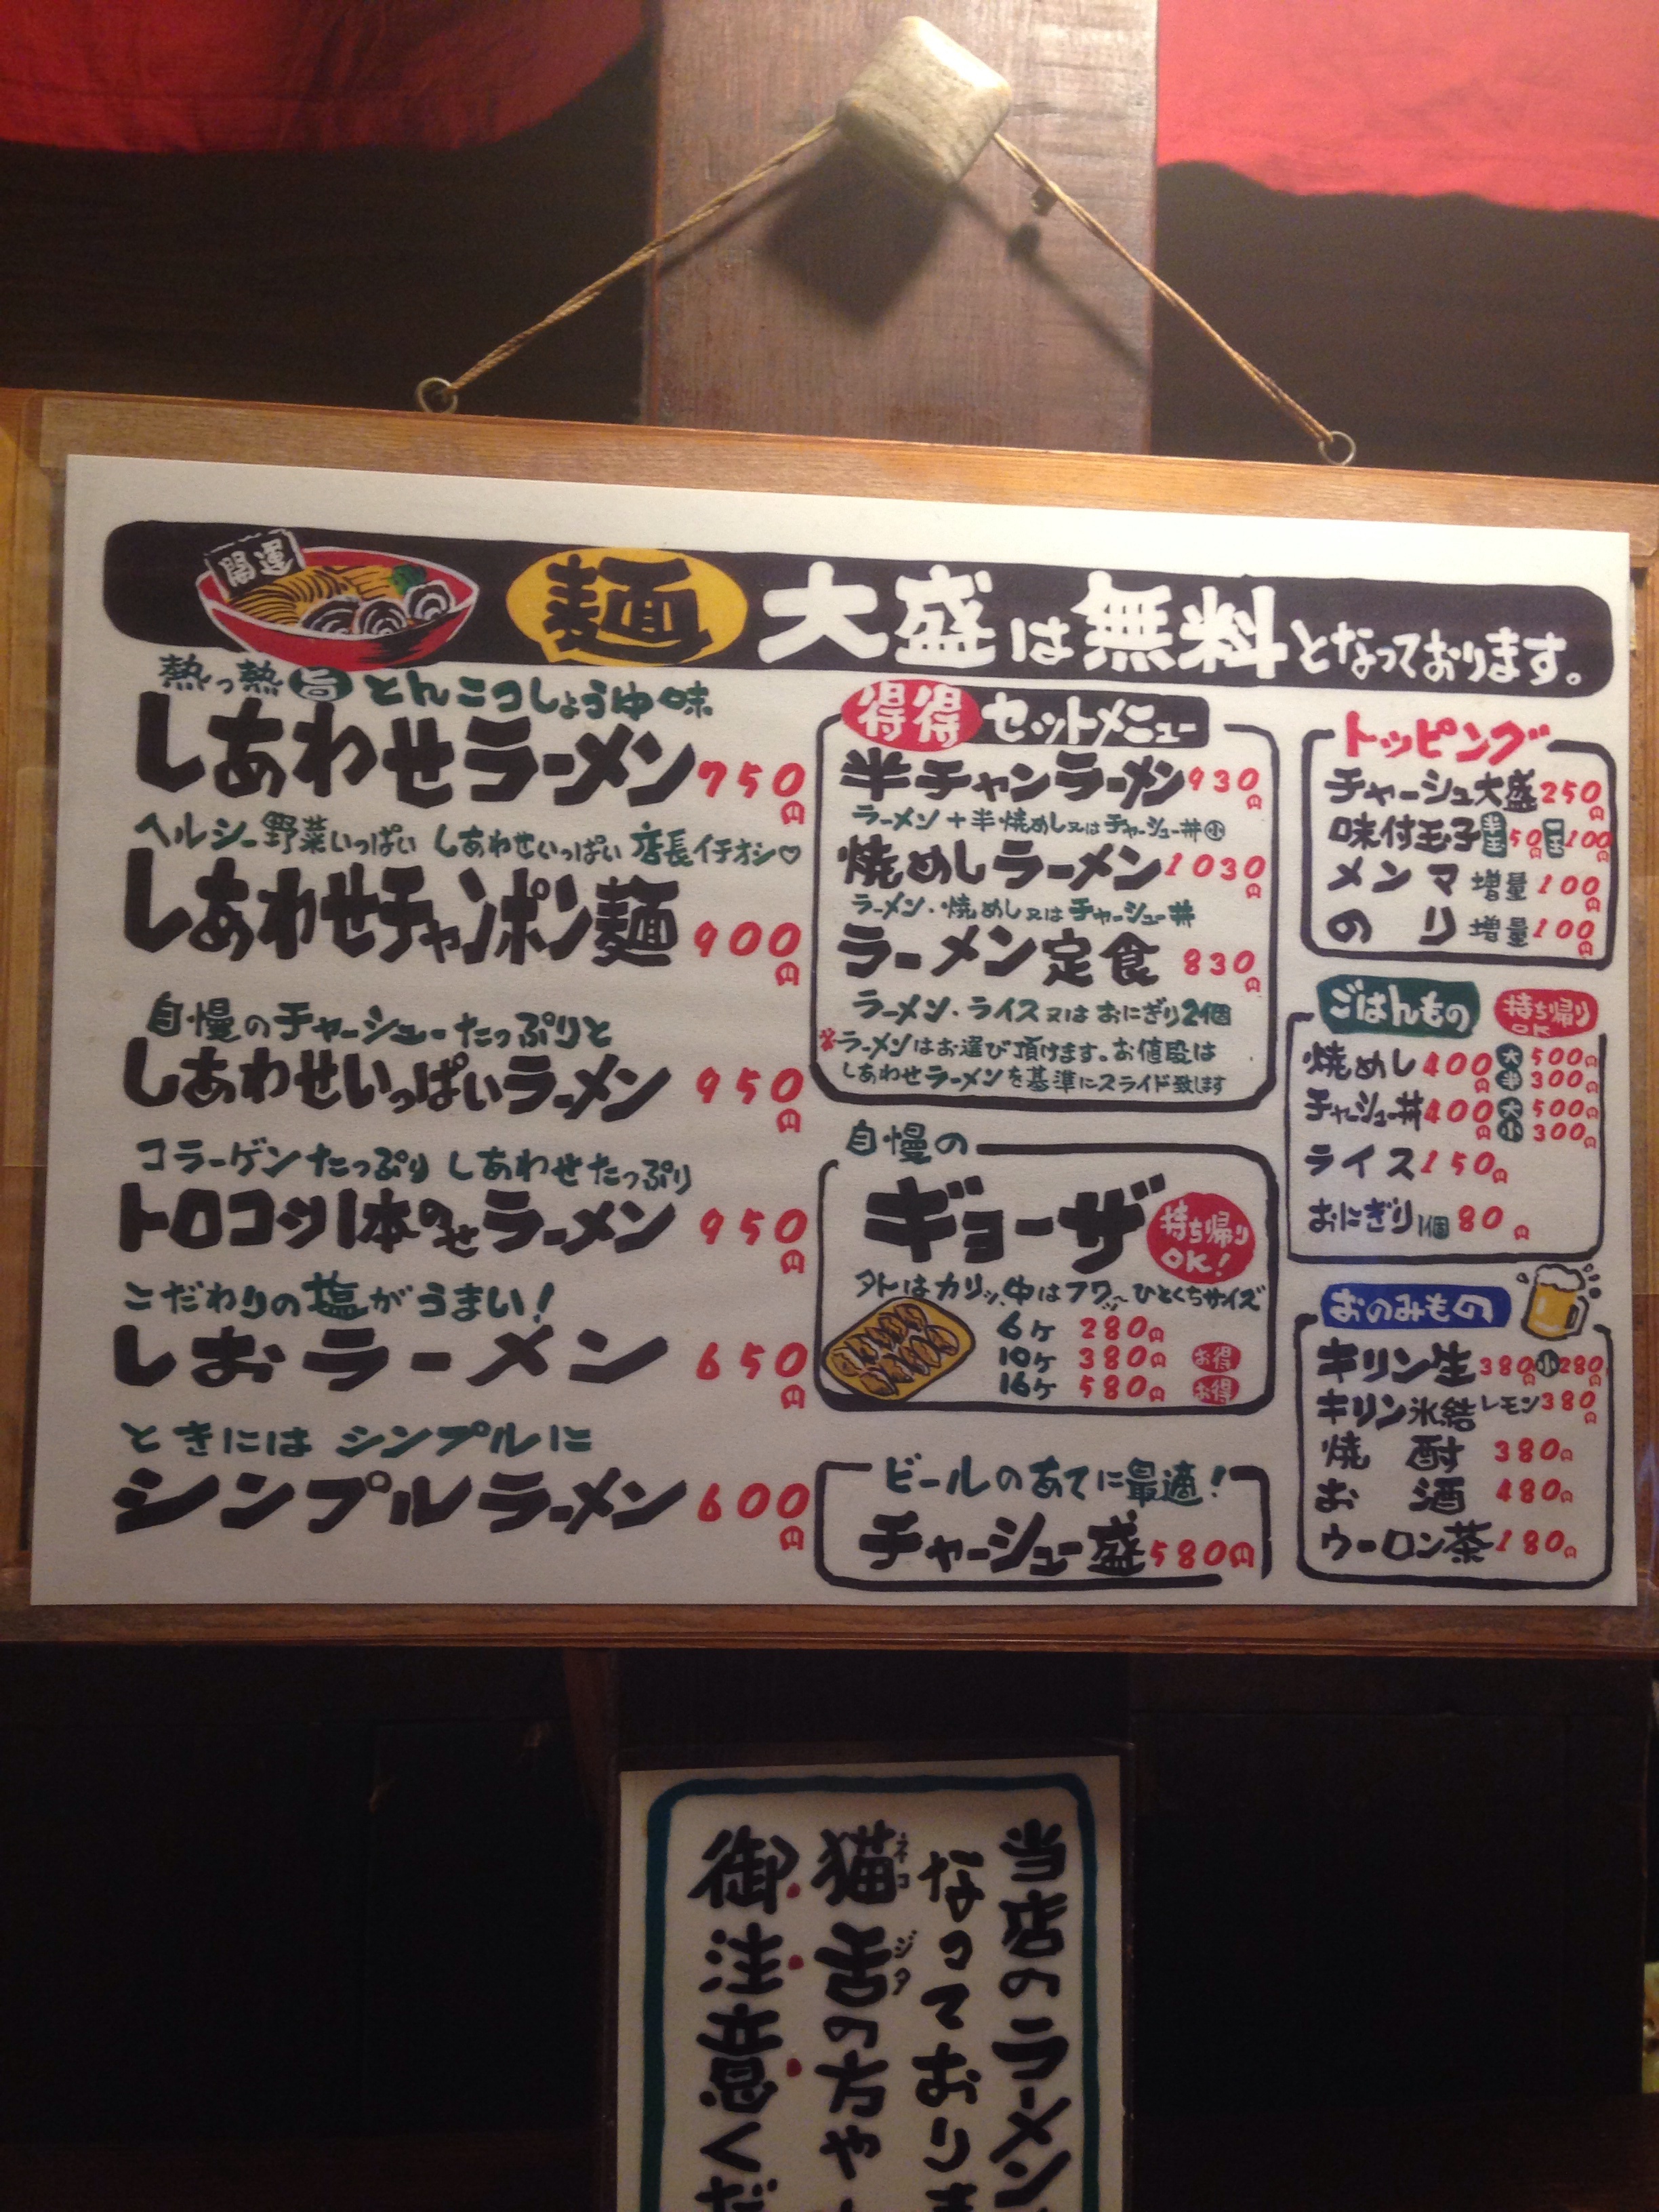 開運
麺 大盛は無料となっております。
熱っ熱 旨 とんこつしょうゆ味
しあわせラーメン 750円
ヘルシー野菜いっぱい しあわせいっぱい 店長イチオシ♡
しあわせチャンポン麺 900円
自慢のチャーシューたっぷりと
しあわせいっぱいラーメン 950円
コラーゲンたっぷり しあわせたっぷり
トロコツ1本のせラーメン 950円
こだわりの塩がうまい!
しおラーメン 650円
ときには シンプルに
シンプルラーメン 600円
得得 セットメニュー
半チャンラーメン 930円
ラーメン+半焼めし又はチャーシュー丼小
焼めしラーメン 1030円
ラーメン・焼めし又はチャーシュー丼
ラーメン定食 830円
ラーメン・ライス又はおにぎり2個
※ラーメンはお選び頂けます。お値段は
しあわせラーメンを基準にスライド致します
自慢の
ギョーザ 持ち帰りOK!
外はカリッ、中はフワッ〜ひとくちサイズ
6ヶ 280円
10ヶ 380円 お得
16ヶ 580円 お得
ビールのあてに最適!
チャーシュー盛 580円
トッピング
チャーシュー大盛 250円
味付玉子 半玉 50円 一玉 100円
メンマ 増量 100円
のり 増量 100円
ごはんもの 持ち帰りOK
焼めし 400円 大 500円 半 300円
チャーシュー丼 400円 大 500円 小 300円
ライス 150円
おにぎり 1個 80円
おのみもの
キリン生 380円 小 280円
キリン氷結レモン 380円
焼酎 380円
お酒 480円
ウーロン茶 180円
当店のラーメン
なっておりま
猫舌の方や
ネコジタ
御注意くだ